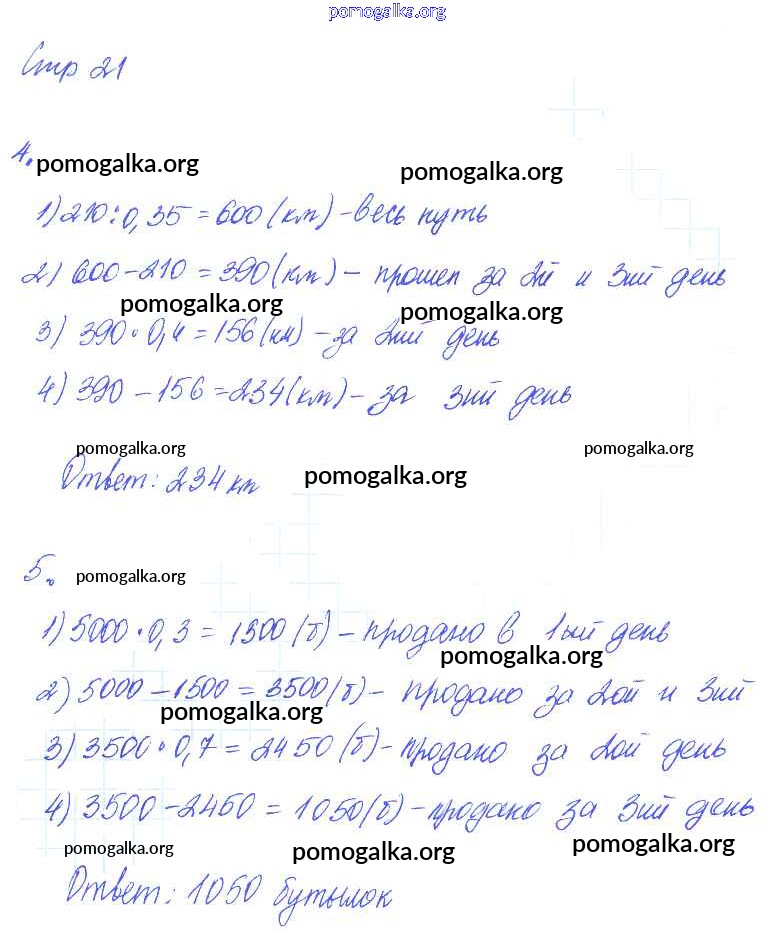 pomogalka.org
Стр 21
4.
pomogalka.org pomogalka.org
1) 210 : 0,35 = 600 (км) - весь путь
2) 600 - 210 = 390 (км) - прошел за 2й и 3ий день
pomogalka.org pomogalka.org
3) 390 · 0,4 = 156 (км) - за 2ий день
4) 390 - 156 = 234 (км) - за 3ий день
pomogalka.org pomogalka.org
Ответ: 234 км pomogalka.org
5. pomogalka.org
1) 5000 · 0,3 = 1500 (б) - продано в 1ый день
pomogalka.org
2) 5000 - 1500 = 3500 (б) - продано за 2ой и 3ий
pomogalka.org
3) 3500 · 0,7 = 2450 (б) - продано за 2ой день
4) 3500 - 2450 = 1050 (б) - продано за 3ий день
pomogalka.org pomogalka.org pomogalka.org
Ответ: 1050 бутылок